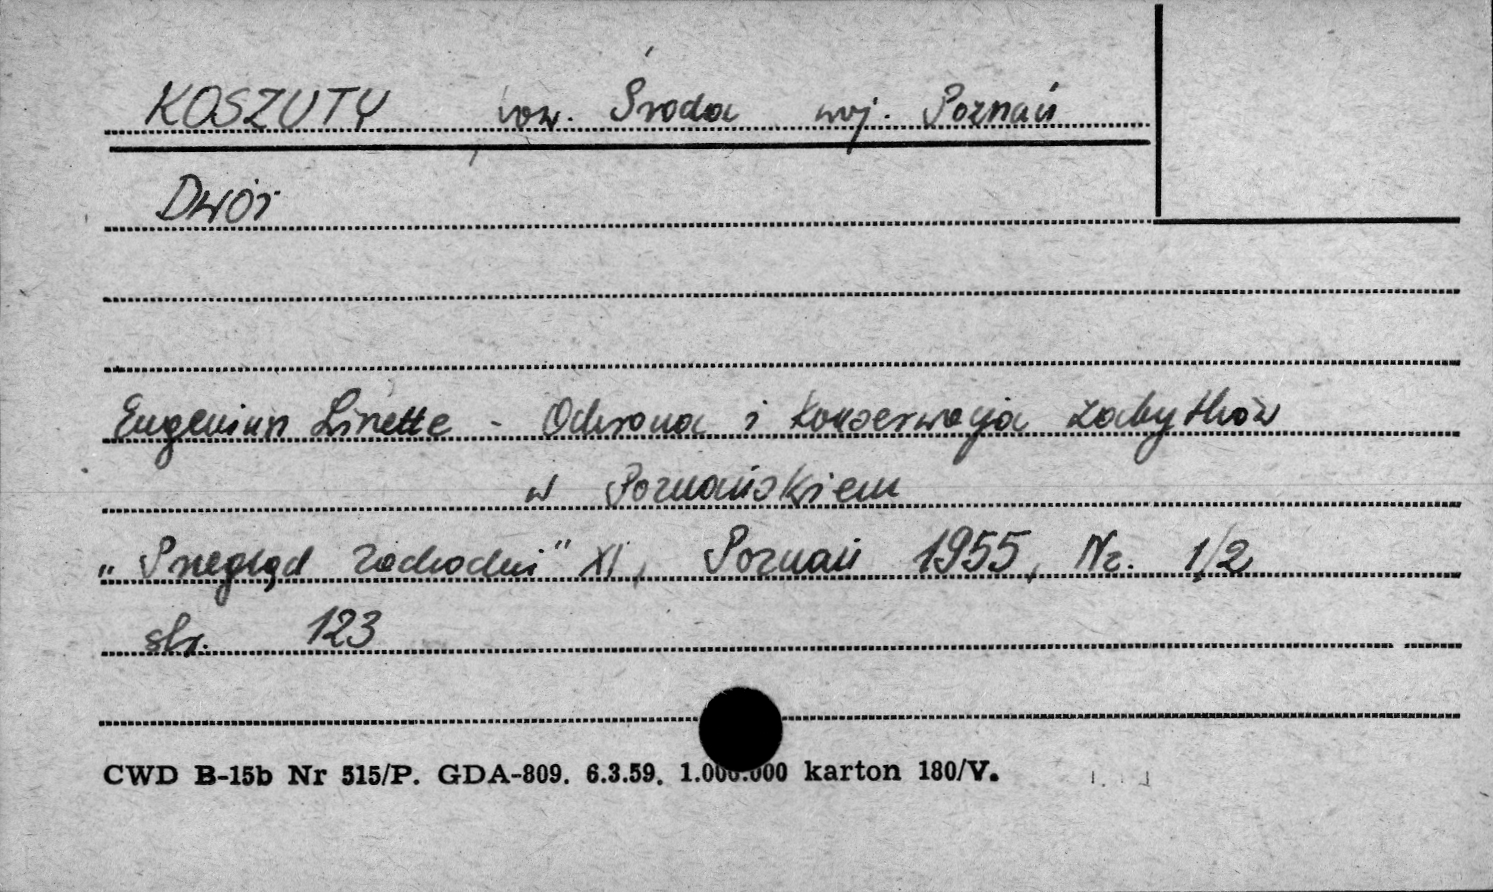 KOSZUTY pow. Środa woj. Poznań
Dwór
Eugeniusz Linette - Ochrona i konserwacja zabytków
w Poznańskiem
„Przegląd Zachodni" XI, Poznań 1955, Nr. 1/2
str. 123
CWD B-15b Nr 515/P. GDA-809. 6.3.59. 1.000.000 karton 180/V.